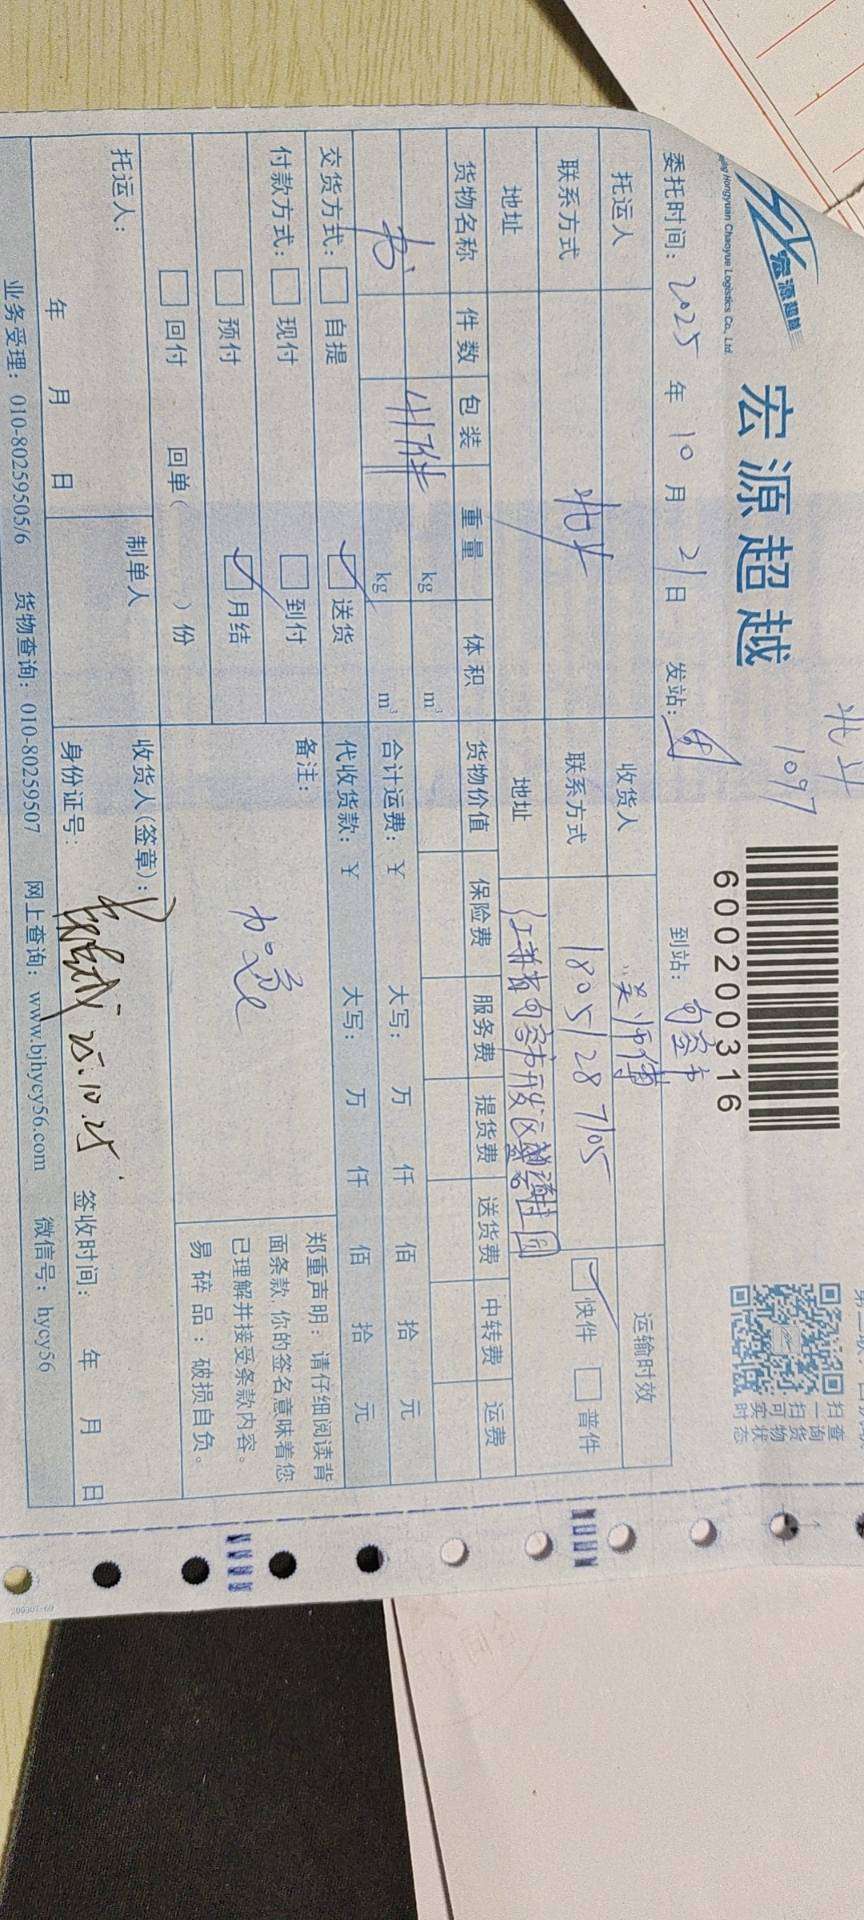 宏源超越
宏源超越
Hongyuan Chaoyue Logistics Co., Ltd.
1097
600200316
扫一扫可实时
查询货物状态
委托时间: 2025 年 10 月 21 日 发站: 到站: 句容市
托运人 收货人 吴师傅 运输时效
联系方式 北斗 联系方式 18051287105 快件 普件
地址 地址 江苏省句容市开发区
货物名称 件数 包装 重量 体积 货物价值 保险费 服务费 提货费 送货费 中转费 运费
kg m³
书 417件 kg m³ 合计运费: ¥ 大写: 万 仟 佰 拾 元
交货方式: 自提 送货 代收货款: ¥ 大写: 万 仟 佰 拾 元
付款方式: 现付 到付 备注: 加急
预付 月结
回付 回单( )份
郑重声明: 请仔细阅读背
面条款, 你的签名意味着您
已理解并接受条款内容。
易碎品: 破损自负。
托运人: 制单人 收货人(签章):
年 月 日 身份证号: 25.10.25 签收时间: 年 月 日
业务受理: 010-80259505/6 货物查询: 010-80259507 网上查询: www.bjhycy56.com 微信号: hycy56